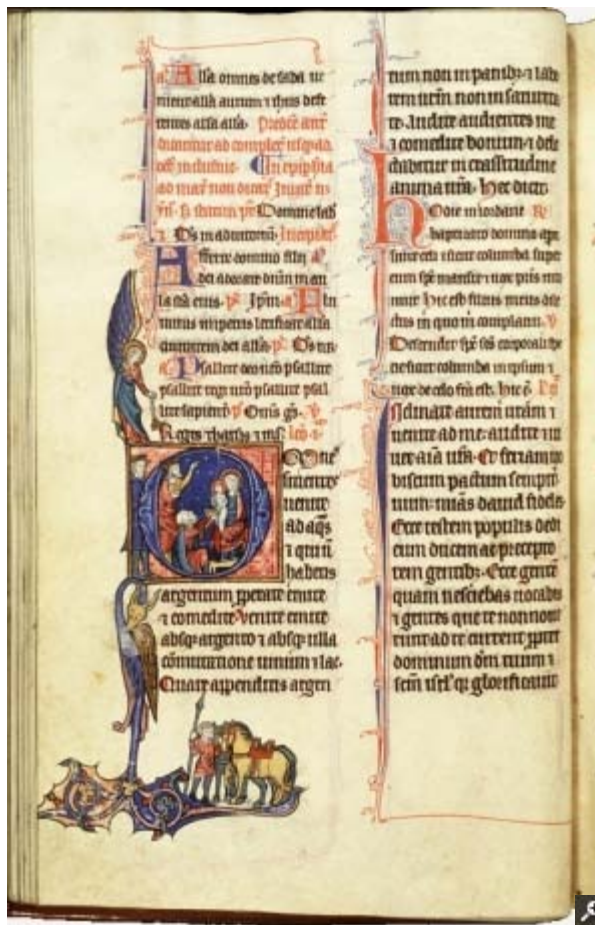 Alla omnes de saba ve
nient alla aurum et thus defe
rentes alla alla.
Domine lab
Os in adiutorium.
Afferte domino filii
dei adorate dominum in au
la sca eius. ps. Ipm. a. flu
minis impetus letificat alla
civitatem dei alla. ps. Os nr.
Psallite deo nro psallite
psallite regi nro psallite psal
lite sapienter ps Omns gs. v
Reges tharsis et ins. lco i.
Omnes
sitientes
venite
ad aqs
et qui n
habetis
argentum pperate emite
et comedite venite emite
absq argento et absq ulla
comutatione vinum et lac.
Quare appenditis argen
tum non in panibz et labo
rem vrm non in saturita
te. Audite audientes me
et comedite bonum et dele
ctabitur in crassitudine
anima vra. Hec dicit.
Hodie in iordane R
baptizato domino ape
ti sunt celi et sicut columba supe
eum sps mansit et vox pris into
nuit Hic est filius meus dile
ctus in quo m complacui. v
Descendit sps scs corporali spe
cie sicut columba in ipsum et
vox de celo fca est. hic e.
Inclinate aurem vram et
venite ad me: audite et vi
vet aia vra. Et feriam vo
biscum pactum sempiter
num: mias david fideles
Ecce testem populis dedi
eum ducem ac precepto
rem gentibz. Ecce gente
quam nesciebas vocabis
et gentes que te non nove
runt ad te current ppter
dominum dm tuum et
scm isrl qr glorificavit